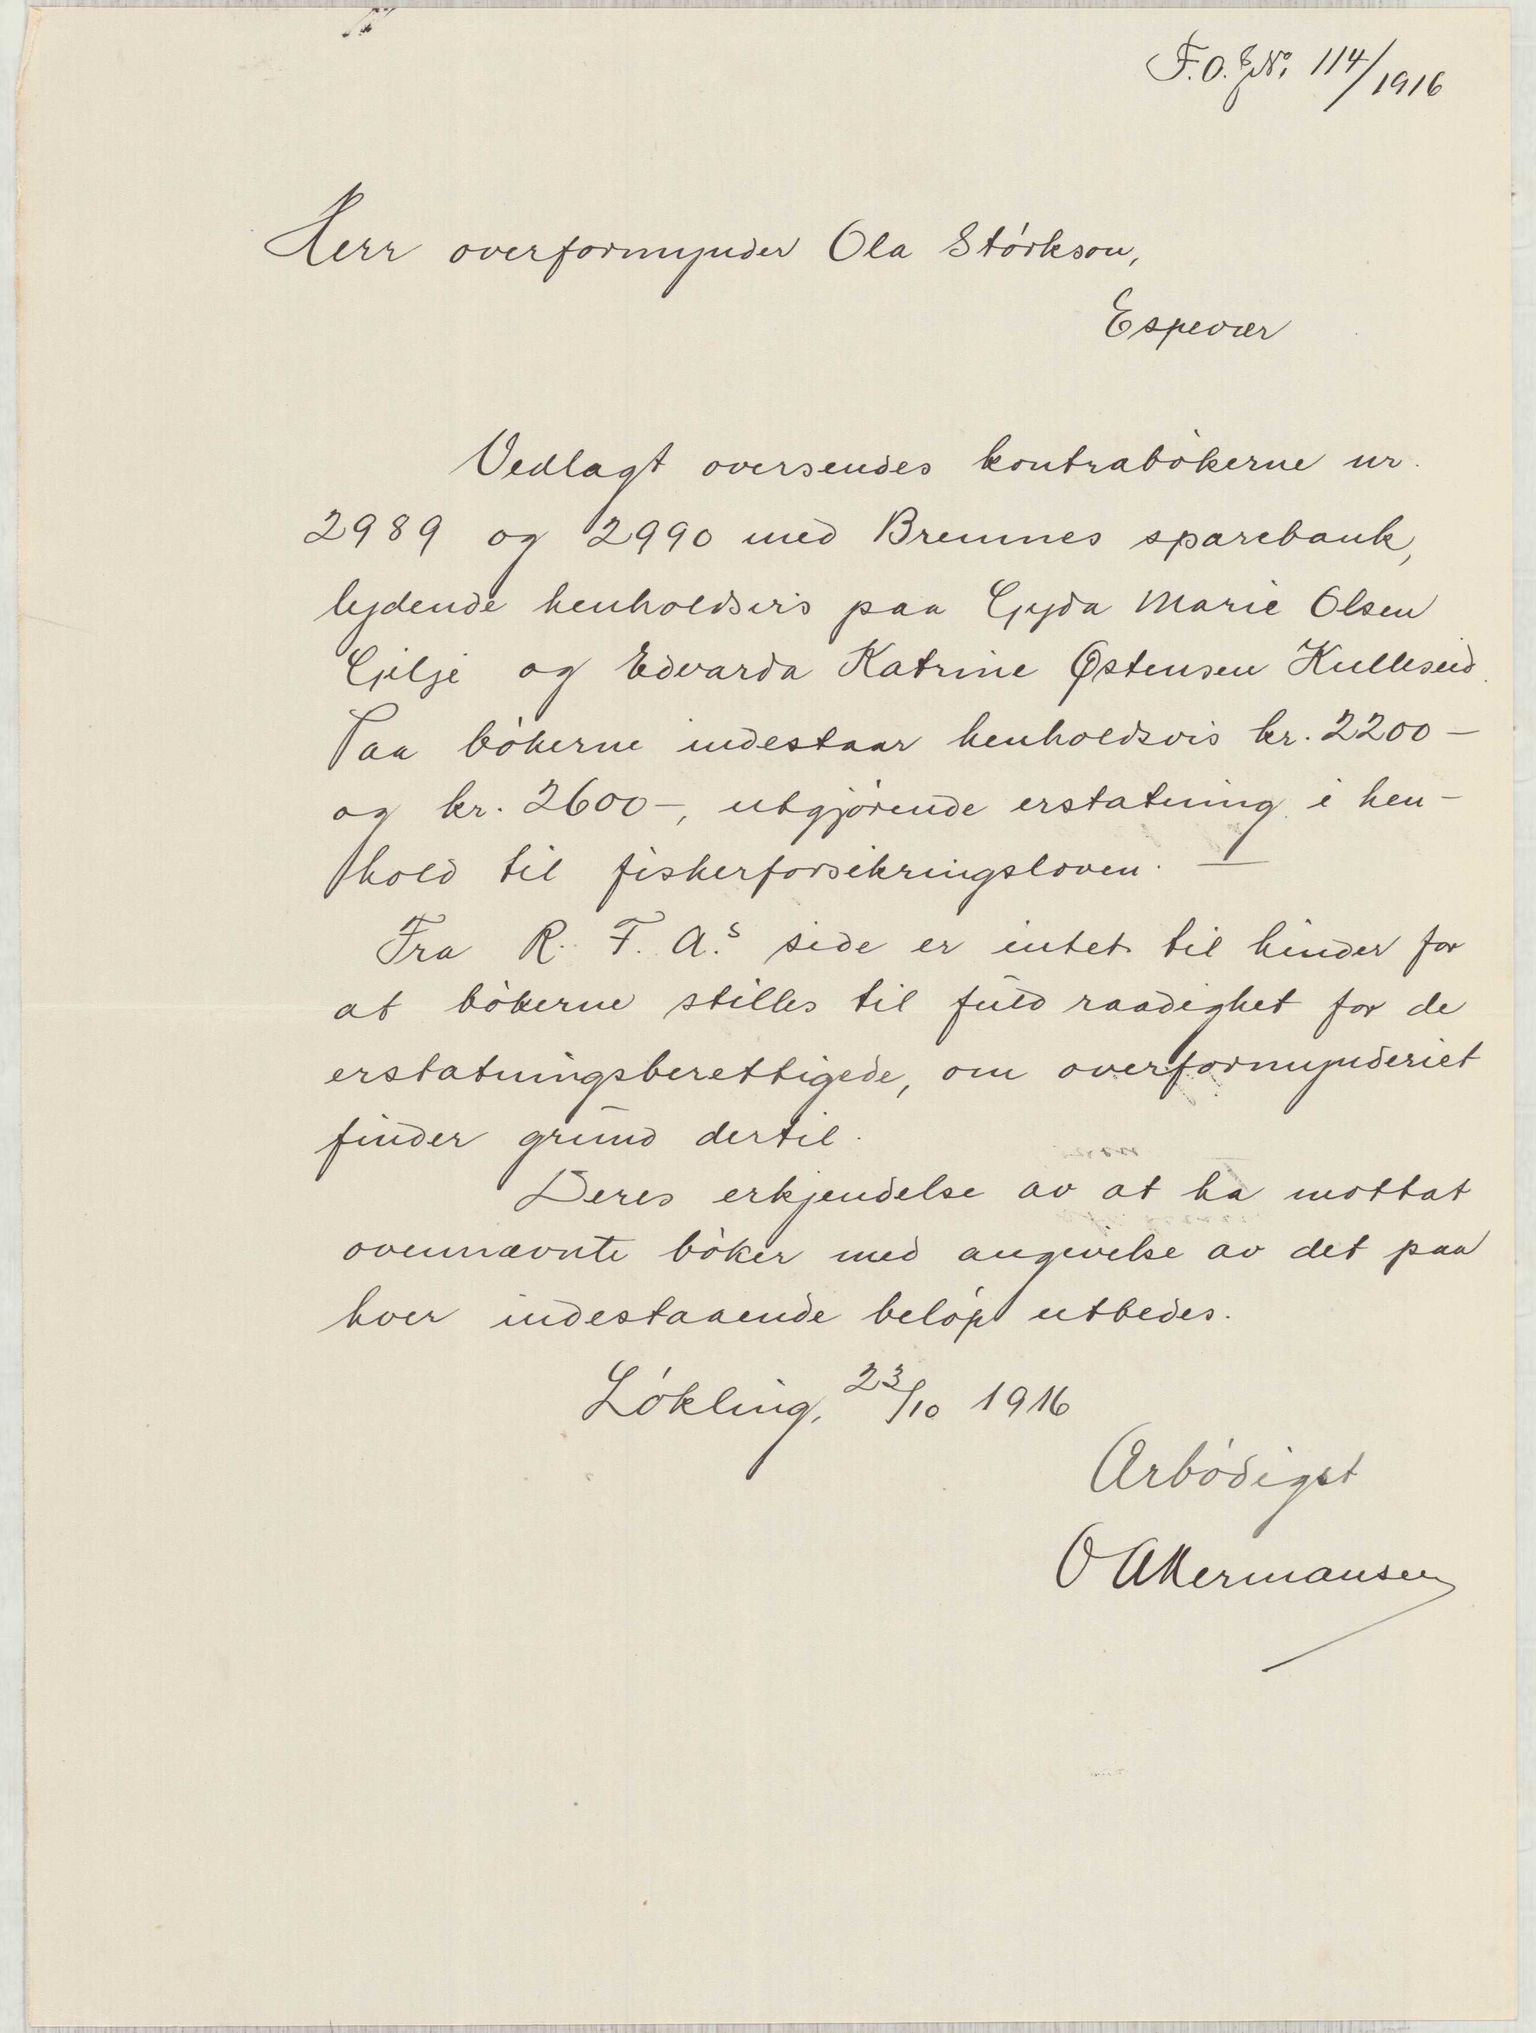 F.O. J№. 114/1916
Herr overformynder Ola Störkson,
Espevær
Vedlagt oversendes kontrabökerne nr.
2989 og 2990 med Bremnes sparebank,
lydende henholdsvis paa Gyda Marie Olsen
Gilje og Edvarda Katrine Østensen Kulleseid.
Paa bökerne indestaar henholdsvis kr. 2200 –
og kr. 2600 –, utgjörende erstatning i hen-
hold til fiskerforsikringsloven. —
Fra R. F. A.s side er intet til hinder for
at bökerne stilles til fuld raadighet for de
erstatningsberettigede, om overformynderiet
finder grund dertil.
Deres erkjendelse av at ha mottat
ovennævnte böker med angivelse av det paa
hver indestaaende belöp utbedes.
Lökling, 23/10 1916
Ærbödigst